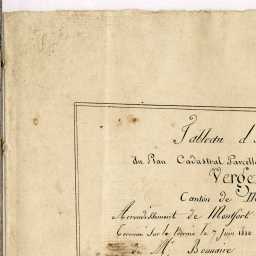 Tableau d'
du Plan Cadastral Parcell
Verge
Canton de M
Arrondissement de Montfort
Terminé sur le terrain le 7 juin 18
de Mr Bonnaire